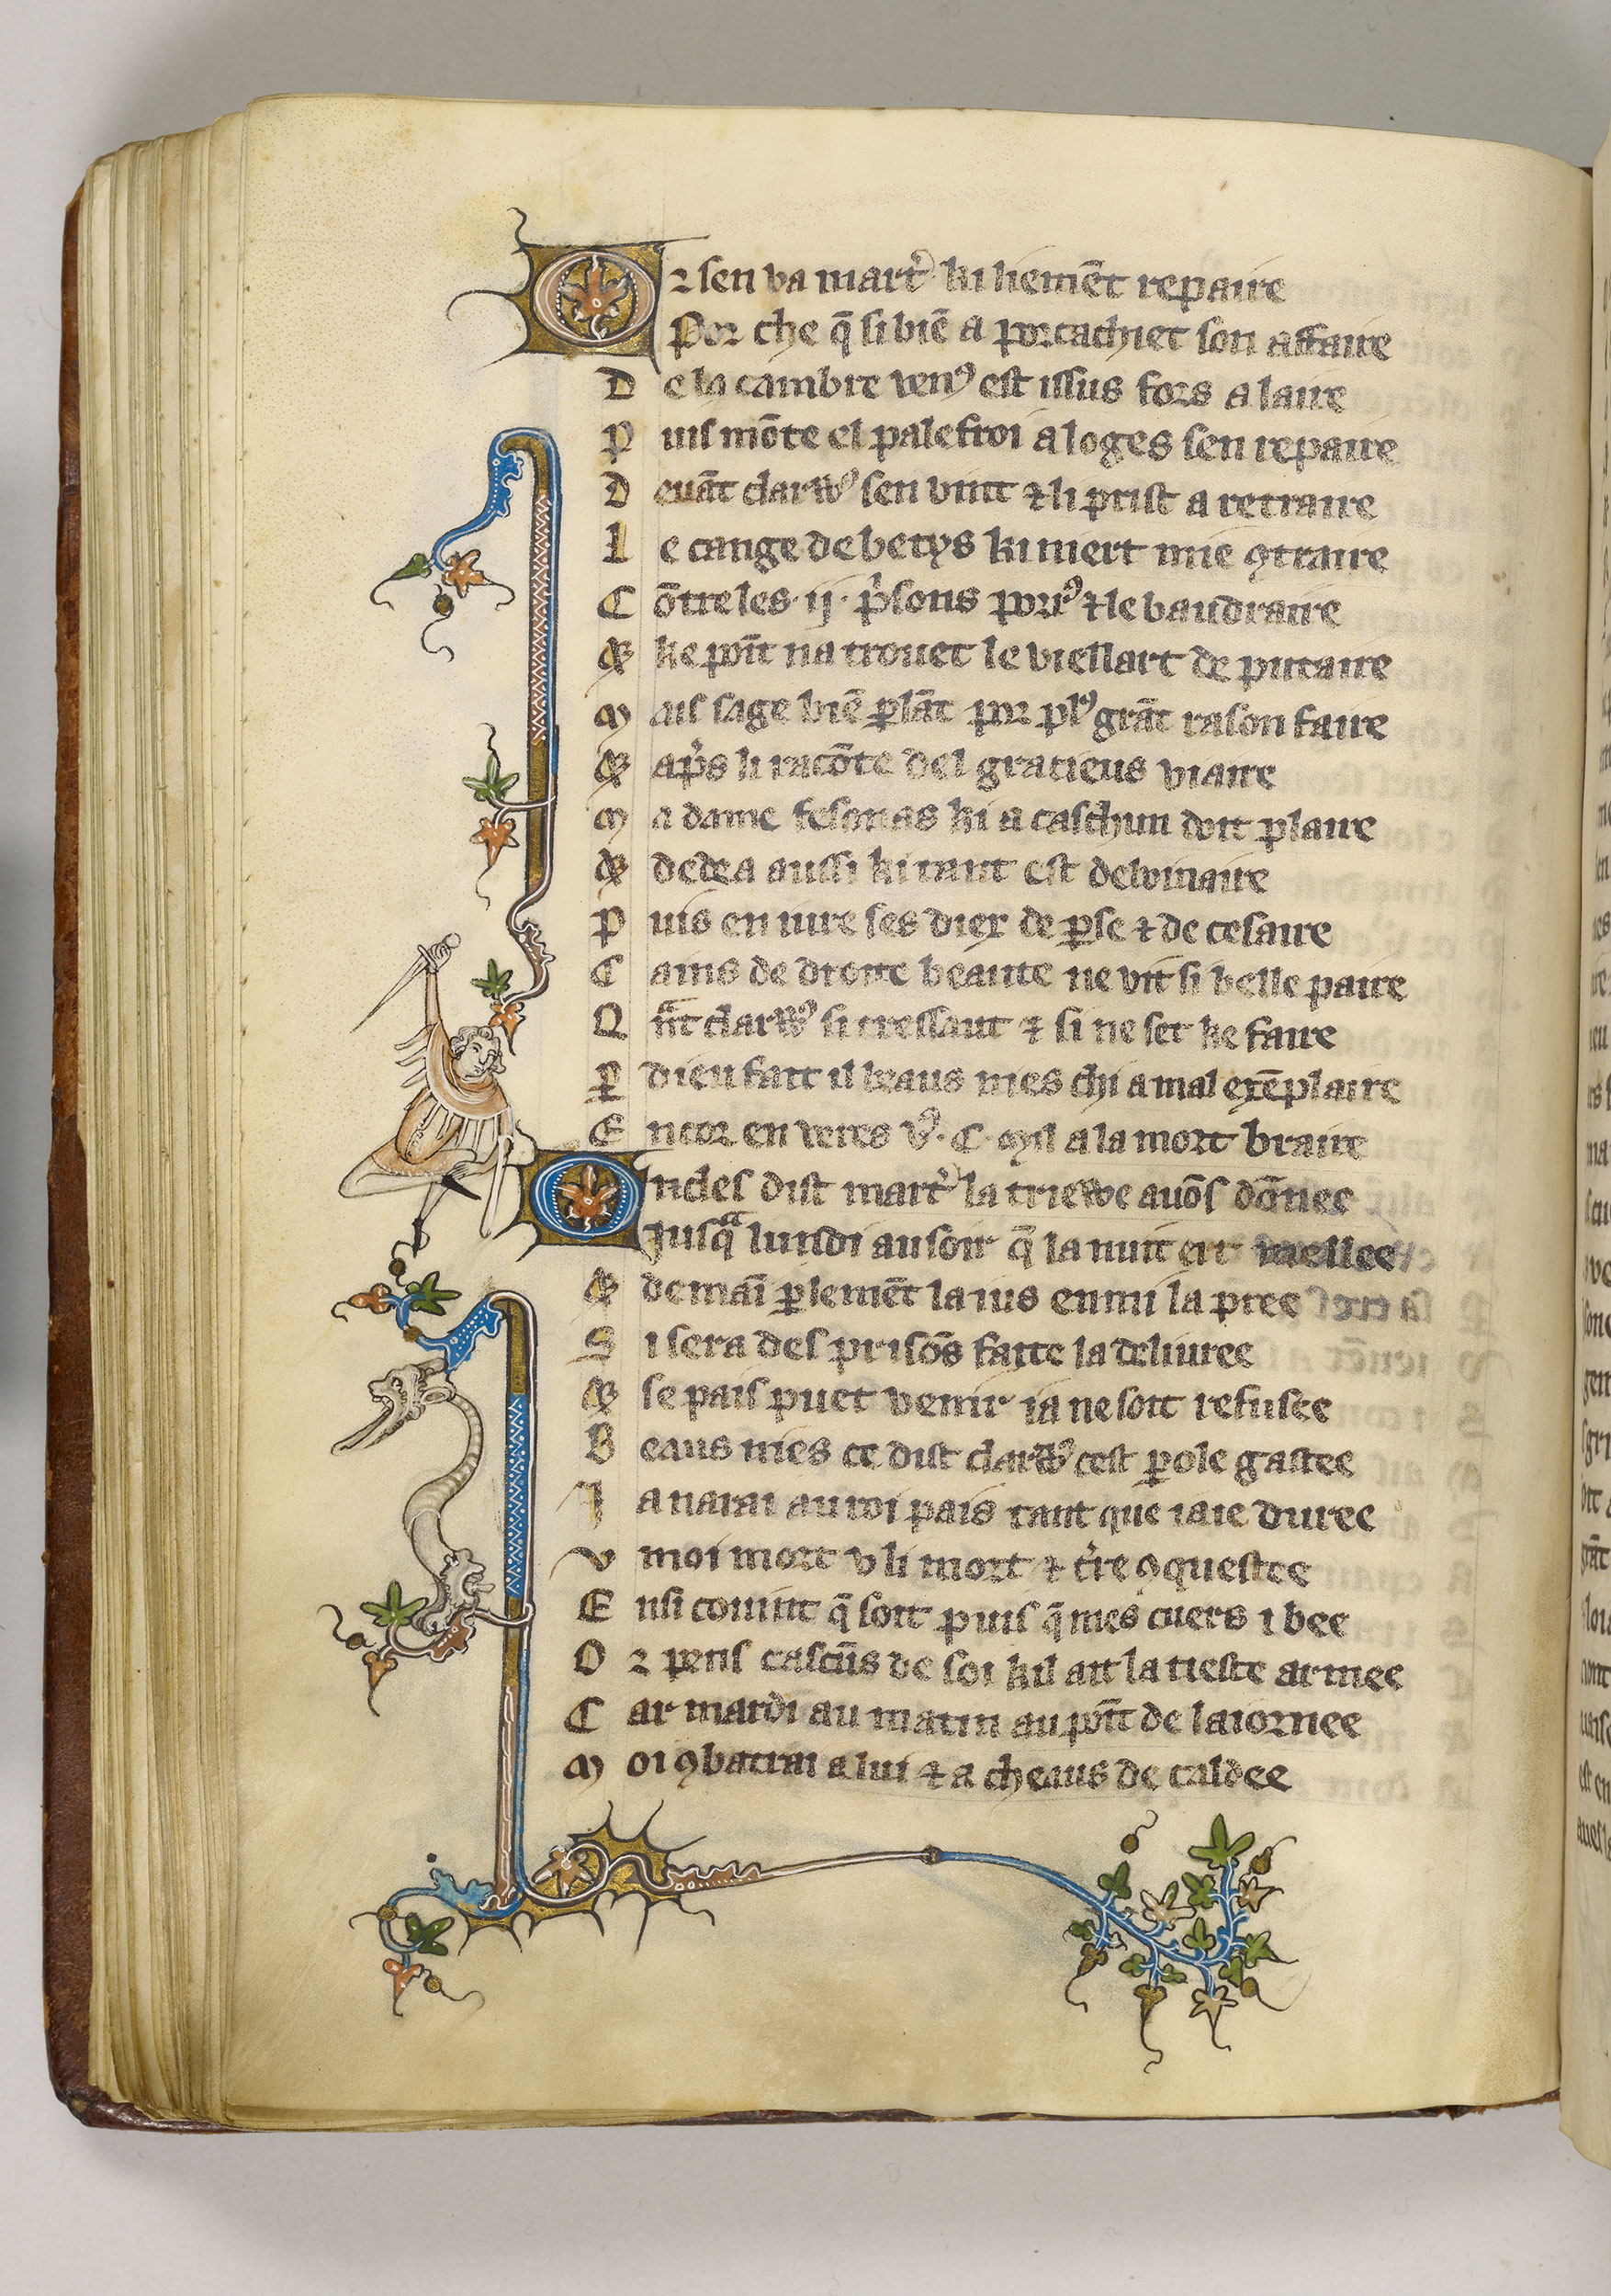 Or sen va marcꝰ ki liemēt repaire
Por che q̄ si biē a porcachiet son affaire
De la cambre venꝰ est issus fors a laire
Puis mōte el palefroi a loges sen repaire
Deuāt clarwꝰ sen vint ⁊ li prist a retraire
Le cange de betys ki niert mie ꝯtraire
Cōtre les · ij · p̓sons porrꝰ ⁊ le baudraire
Et ke poīt na trouet le viellart de putaire
Mais sage biē ꝑlāt por plꝰ grāt raison faire
Et ap̓s li racōte del gratieus viaire
Ma dame fesonas ki a caschun doit plaire
Et dedea aussi ki tant est debinaire
Puis en iure ses diex de ꝑse ⁊ de cesaire
Cains de droite beaute ne vit si belle paire
Qᵃnt clarwꝰ si tressaut ⁊ si ne set ke faire
Ꝑ dieu fait il beaus nies chi a mal exēplaire
Encor en veres vꝰ · C · Myl a la mort braire
Oncles dist marcꝰ la triewe auōs dōnee
Jusqᵃ lundi au soir q̄ la nuit ert mellee
Et demaī ꝑlemēt la ius enmi la pree
Si sera des prisōs faite la deliuree
Et se pais puet venir ia ne soit refusee
Beaus nies ce dist clarwꝰ cest ꝑole gastee
Ja narai au roi pais tant que iaie duree
V moi mort v li mort ⁊ t̓re ꝯquestee
Ensi couuit q̄ soit puis q̄ mes cuers i bee
Or pens cascūs de soi kil ait la tieste armee
Car mardi au matin au poīt de laiornee
Moi ꝯbatrai a lui ⁊ a cheaus de caldee